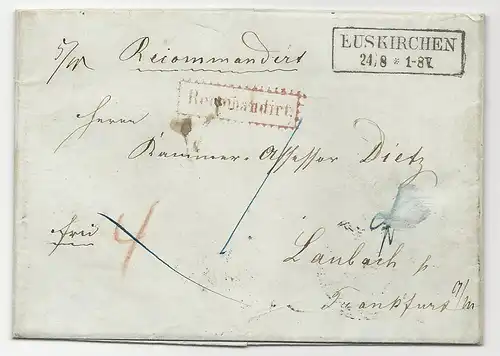 Recommandirt
EUSKIRCHEN
24/8 * 1-8V.
Recomandirt.
Herrn
Kammer-Assessor Dietz
frei
4
Laubach p.
Frankfurt a/m